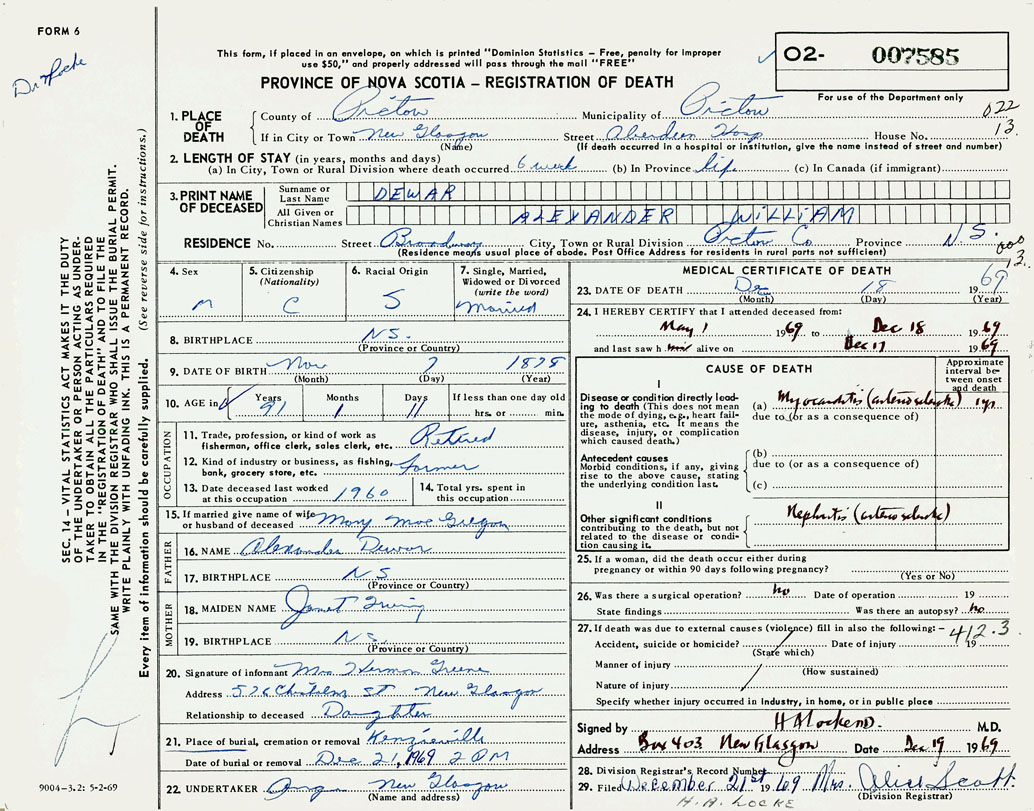 FORM 6
Dr Locke
This form, if placed in an envelope, on which is printed "Dominion Statistics – Free, penalty for improper
use $50," and properly addressed will pass through the mail "FREE"
✓ O2- 007585
PROVINCE OF NOVA SCOTIA – REGISTRATION OF DEATH
For use of the Department only
022
13.
1. PLACE OF DEATH
County of Pictou Municipality of Pictou
If in City or Town New Glasgow Street Aberdeen Hosp House No.
(Name) (If death occurred in a hospital or institution, give the name instead of street and number)
2. LENGTH OF STAY (in years, months and days)
(a) In City, Town or Rural Division where death occurred 6 week (b) In Province life (c) In Canada (if immigrant)
3. PRINT NAME OF DECEASED
Surname or Last Name DEWAR
All Given or Christian Names ALEXANDER WILLIAM
RESIDENCE No. Street Broadway City, Town or Rural Division Pictou Co Province N.S.
(Residence means usual place of abode. Post Office Address for residents in rural parts not sufficient)
000
13.
4. Sex M
5. Citizenship (Nationality) C
6. Racial Origin S
7. Single, Married, Widowed or Divorced (write the word) Married
8. BIRTHPLACE N.S.
(Province or Country)
9. DATE OF BIRTH Nov 7 1878
(Month) (Day) (Year)
10. AGE in Years 91 Months 1 Days 11 If less than one day old
hrs. or min.
OCCUPATION
11. Trade, profession, or kind of work as fisherman, office clerk, sales clerk, etc. Retired
12. Kind of industry or business, as fishing, bank, grocery store, etc. Farmer
13. Date deceased last worked at this occupation 1960
14. Total yrs. spent in this occupation
15. If married give name of wife or husband of deceased Mary MacGregor
FATHER
16. NAME Alexander Dewar
17. BIRTHPLACE N S
(Province or Country)
MOTHER
18. MAIDEN NAME Janet Irving
19. BIRTHPLACE N S.
(Province or Country)
20. Signature of informant Mrs Hermon Greene
Address 576 Chisholm ST New Glasgow
Relationship to deceased Daughter
21. Place of burial, cremation or removal Kenzieville
Date of burial or removal Dec 21, 1969 2 PM
22. UNDERTAKER New Glasgow
(Name and address)
MEDICAL CERTIFICATE OF DEATH
23. DATE OF DEATH Dec 18 1969
(Month) (Day) (Year)
24. I HEREBY CERTIFY that I attended deceased from:
May 1 1969 to Dec 18 1969
and last saw h him alive on Dec 17 1969
CAUSE OF DEATH
Approximate interval between onset and death
I
Disease or condition directly leading to death (This does not mean the mode of dying, e.g., heart failure, asthenia, etc. It means the disease, injury, or complication which caused death.)
(a) Myocarditis (arteriosclerotic) 1 yr
due to (or as a consequence of)
Antecedent causes
Morbid conditions, if any, giving rise to the above cause, stating the underlying condition last.
(b)
due to (or as a consequence of)
(c)
II
Other significant conditions contributing to the death, but not related to the disease or condition causing it.
Nephritis (arteriosclerotic)
25. If a woman, did the death occur either during
pregnancy or within 90 days following pregnancy?
(Yes or No)
26. Was there a surgical operation? no Date of operation 19
State findings Was there an autopsy? no
27. If death was due to external causes (violence) fill in also the following: –
412.3
Accident, suicide or homicide? Date of injury 19
(State which)
Manner of injury (How sustained)
Nature of injury
Specify whether injury occurred in Industry, in home, or in public place
Signed by H A Locke M.D.
Address Box 403 New Glasgow Date Dec 19 1969
28. Division Registrar's Record Number
29. Filed December 21st 1969 Mrs. Alice Scott
(Division Registrar)
H. A. LOCKE
SEC. 14 – VITAL STATISTICS ACT MAKES IT THE DUTY
OF THE UNDERTAKER OR PERSON ACTING AS UNDER-
TAKER TO OBTAIN ALL THE PARTICULARS REQUIRED
IN THE "REGISTRATION OF DEATH" AND TO FILE THE
SAME WITH THE DIVISION REGISTRAR WHO SHALL ISSUE THE BURIAL PERMIT.
WRITE PLAINLY WITH UNFADING INK. THIS IS A PERMANENT RECORD.
Every item of information should be carefully supplied. (See reverse side for instructions.)
9004-3.2: 5-2-69